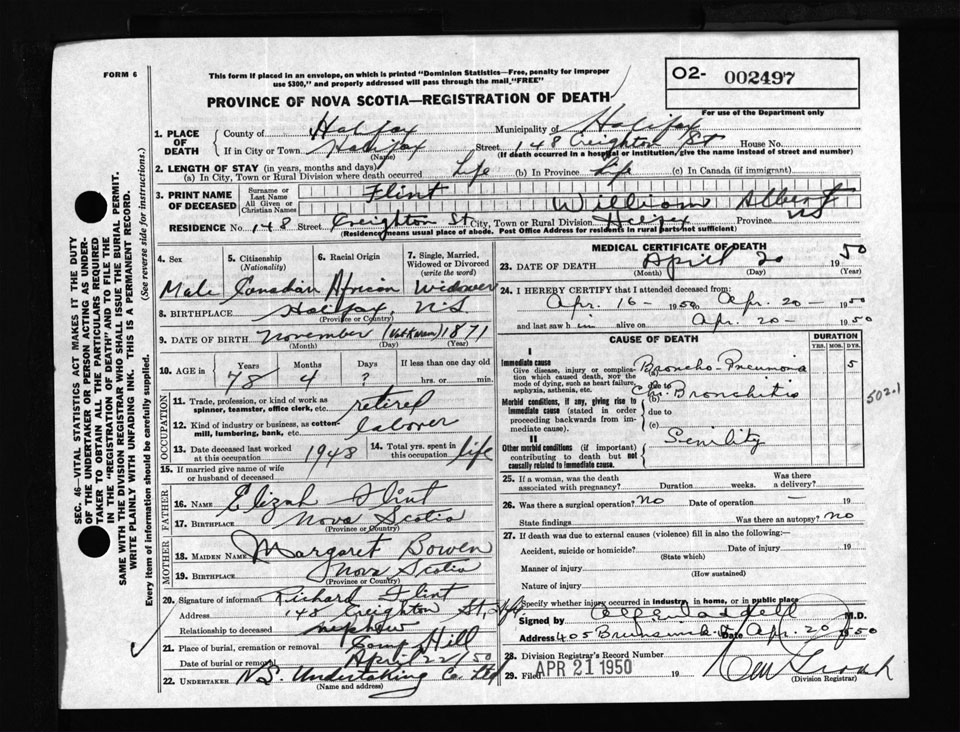 FORM 6
This form if placed in an envelope, on which is printed "Dominion Statistics—Free, penalty for improper
use $300," and properly addressed will pass through the mail, "FREE"
PROVINCE OF NOVA SCOTIA—REGISTRATION OF DEATH
O2- 002497
For use of the Department only
1. PLACE OF DEATH
County of Halifax Municipality of Halifax
If in City or Town Halifax Street 148 Creighton St House No.
(Name) (If death occurred in a hospital or institution, give the name instead of street and number)
2. LENGTH OF STAY (in years, months and days)
(a) In City, Town or Rural Division where death occurred Life (b) In Province Life (c) In Canada (if immigrant)
3. PRINT NAME OF DECEASED
Surname or Last Name Flint
All Given or Christian Names William Albert
RESIDENCE No. 148 Street Creighton St City, Town or Rural Division Halifax Province NS
(Residence means usual place of abode. Post Office Address for residents in rural parts not sufficient)
4. Sex
Male
5. Citizenship (Nationality)
Canadian
6. Racial Origin
African
7. Single, Married, Widowed or Divorced (write the word)
Widower
8. BIRTHPLACE Halifax N.S.
(Province or Country)
9. DATE OF BIRTH November (Unknown) 1871
(Month) (Day) (Year)
10. AGE in Years Months Days If less than one day old
78 4 ? hrs. or min.
OCCUPATION
11. Trade, profession, or kind of work as
spinner, teamster, office clerk, etc. retired
12. Kind of industry or business, as cotton-
mill, lumbering, bank, etc. laborer
13. Date deceased last worked at this occupation 1948
14. Total yrs. spent in this occupation life
15. If married give name of wife
or husband of deceased
FATHER
16. Name Elizah Flint
17. Birthplace Nova Scotia
(Province or Country)
MOTHER
18. MAIDEN NAME Margaret Bowen
19. BIRTHPLACE Nova Scotia
(Province or Country)
20. Signature of informant Richard Flint
Address 148 Creighton St, Hfx.
Relationship to deceased nephew
21. Place of burial, cremation or removal Camp Hill
Date of burial or removal April 22 '50
22. UNDERTAKER N.S. Undertaking Co. Ltd
(Name and address)
MEDICAL CERTIFICATE OF DEATH
23. DATE OF DEATH April 20 1950
(Month) (Day) (Year)
24. I HEREBY CERTIFY that I attended deceased from:
Apr. 16 - 1950 to Apr. 20 - 1950
and last saw him alive on Apr. 20 - 1950
CAUSE OF DEATH
DURATION
YRS. MOS. DYS.
I
Immediate cause
Give disease, injury or complica-
tion which caused death, nor the
mode of dying, such as heart failure,
asphyxia, asthenia, etc.
(a) Broncho-Pneumonia 5
due to
Morbid conditions, if any, giving rise to
immediate cause (stated in order
proceeding backwards from im-
mediate cause).
(b) Ch. Bronchitis
due to
(c)
502.1
II
Other morbid conditions (if important)
contributing to death but not
causally related to immediate cause.
Senility
25. If a woman, was the death associated with pregnancy? Duration weeks. Was there a delivery?
26. Was there a surgical operation? No Date of operation — 19
State findings Was there an autopsy? No
27. If death was due to external causes (violence) fill in also the following:—
Accident, suicide or homicide? Date of injury 19
(State which)
Manner of injury
(How sustained)
Nature of injury
Specify whether injury occurred in industry, in home, or in public place
Signed by M.D.
Address 405 Brunswick St Date Apr. 20 1950
28. Division Registrar's Record Number
29. Filed APR 21 1950
(Division Registrar)
SEC. 46—VITAL STATISTICS ACT MAKES IT THE DUTY
OF THE UNDERTAKER OR PERSON ACTING AS UNDER-
TAKER TO OBTAIN ALL THE PARTICULARS REQUIRED
IN THE "REGISTRATION OF DEATH" AND TO FILE THE
SAME WITH THE DIVISION REGISTRAR WHO SHALL ISSUE THE BURIAL PERMIT.
WRITE PLAINLY WITH UNFADING INK. THIS IS A PERMANENT RECORD.
Every item of information should be carefully supplied. (See reverse side for instructions.)